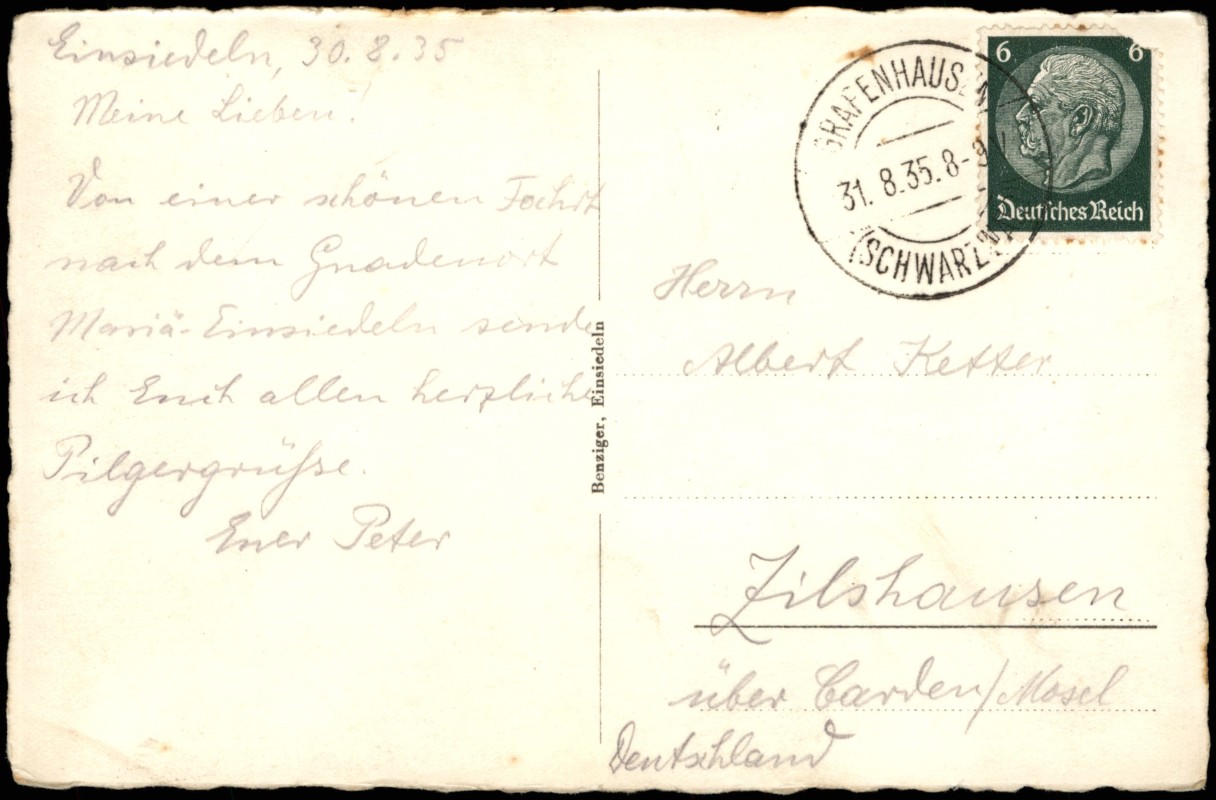 Einsiedeln, 30.8.35
Meine Lieben!
Von einer schönen Fahrt
nach dem Gnadenort
Mariä-Einsiedeln sende
ich Euch allen herzliche
Pilgergrüße.
Euer Peter
Benziger, Einsiedeln
GRAFENHAUSEN
31.8.35.8-9
(SCHWARZW
6 6
Deutsches Reich
Herrn
Albert Ketter
Zilshausen
über Carden/Mosel
Deutschland